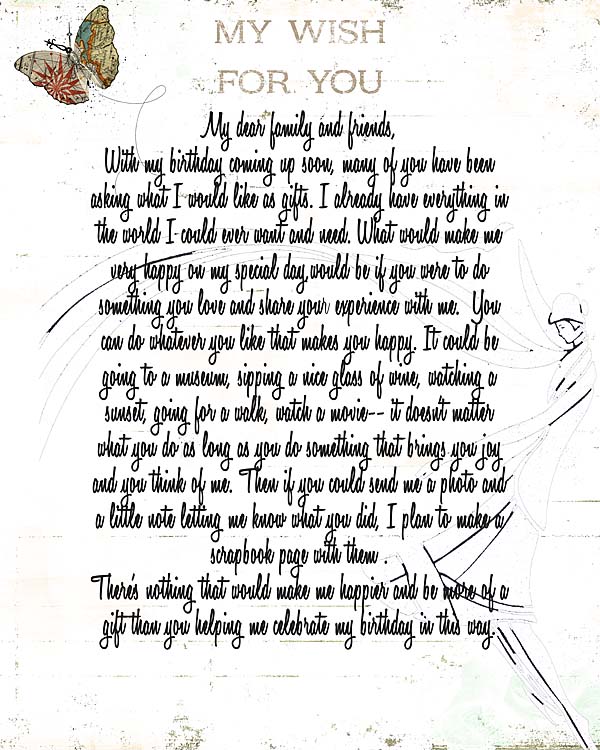 MY WISH
FOR YOU
My dear family and friends,
With my birthday coming up soon, many of you have been
asking what I would like as gifts. I already have everything in
the world I could ever want and need. What would make me
very happy on my special day,would be if you were to do
something you love and share your experience with me. You
can do whatever you like that makes you happy. It could be
going to a museum, sipping a nice glass of wine, watching a
sunset, going for a walk, watch a movie-- it doesn't matter
what you do as long as you do something that brings you joy
and you think of me. Then if you could send me a photo and
a little note letting me know what you did, I plan to make a
scrapbook page with them .
There's nothing that would make me happier and be more of a
gift than you helping me celebrate my birthday in this way.